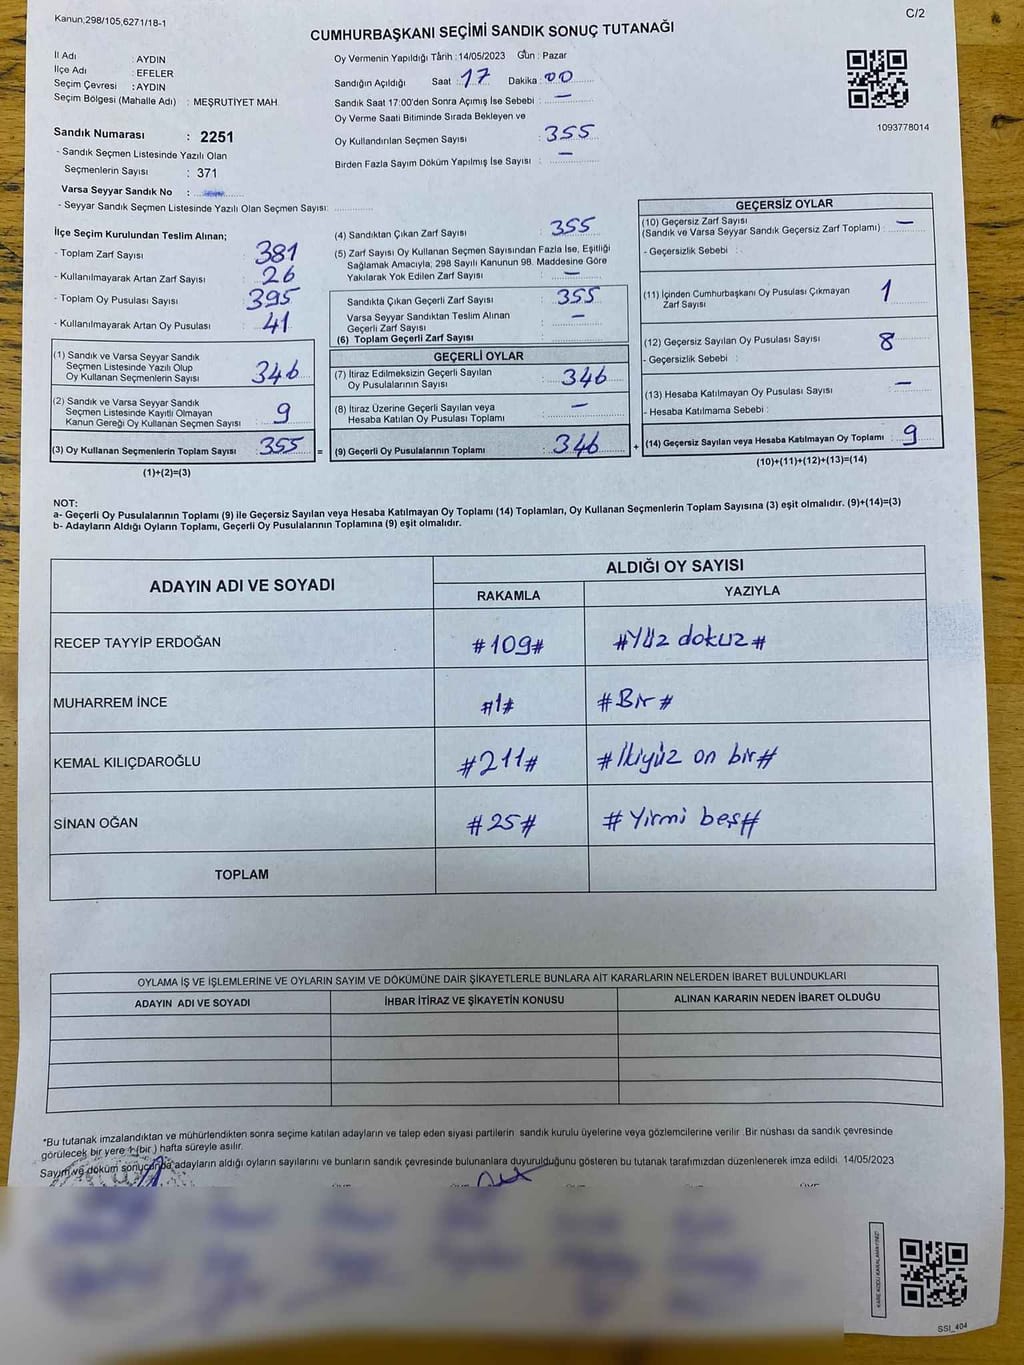 Kanun,298/105,6271/18-1
C/2
CUMHURBAŞKANI SEÇİMİ SANDIK SONUÇ TUTANAĞI
İl Adı : AYDIN
İlçe Adı : EFELER
Seçim Çevresi : AYDIN
Seçim Bölgesi (Mahalle Adı) : MEŞRUTİYET MAH.
Sandık Numarası : 2251
- Sandık Seçmen Listesinde Yazılı Olan
Seçmenlerin Sayısı : 371
Varsa Seyyar Sandık No :
- Seyyar Sandık Seçmen Listesinde Yazılı Olan Seçmen Sayısı:
Oy Vermenin Yapıldığı Tarih : 14/05/2023 Gün : Pazar
Sandığın Açıldığı Saat : 17 Dakika : 00
Sandık Saat 17:00'den Sonra Açımış İse Sebebi : —
Oy Verme Saati Bitiminde Sırada Bekleyen ve
Oy Kullandırılan Seçmen Sayısı : 355
Birden Fazla Sayım Döküm Yapılmış İse Sayısı : —
1093778014
İlçe Seçim Kurulundan Teslim Alınan;
- Toplam Zarf Sayısı 381
- Kullanılmayarak Artan Zarf Sayısı 26
- Toplam Oy Pusulası Sayısı 395
- Kullanılmayarak Artan Oy Pusulası 41
(1) Sandık ve Varsa Seyyar Sandık
Seçmen Listesinde Yazılı Olup
Oy Kullanan Seçmenlerin Sayısı 346
(2) Sandık ve Varsa Seyyar Sandık
Seçmen Listesinde Kayıtlı Olmayan
Kanun Gereği Oy Kullanan Seçmen Sayısı 9
(3) Oy Kullanan Seçmenlerin Toplam Sayısı : 355 =
(1)+(2)=(3)
(4) Sandıktan Çıkan Zarf Sayısı : 355
(5) Zarf Sayısı Oy Kullanan Seçmen Sayısından Fazla İse, Eşitliği
Sağlamak Amacıyla; 298 Sayılı Kanunun 98. Maddesine Göre
Yakılarak Yok Edilen Zarf Sayısı : —
Sandıkta Çıkan Geçerli Zarf Sayısı : 355
Varsa Seyyar Sandıktan Teslim Alınan
Geçerli Zarf Sayısı : —
(6) Toplam Geçerli Zarf Sayısı :
GEÇERLİ OYLAR
(7) İtiraz Edilmeksizin Geçerli Sayılan
Oy Pusulalarının Sayısı : 346
(8) İtiraz Üzerine Geçerli Sayılan veya
Hesaba Katılan Oy Pusulası Toplamı : —
(9) Geçerli Oy Pusulalarının Toplamı : 346 +
GEÇERSİZ OYLAR
(10) Geçersiz Zarf Sayısı
(Sandık ve Varsa Seyyar Sandık Geçersiz Zarf Toplamı) : —
- Geçersizlik Sebebi :
(11) İçinden Cumhurbaşkanı Oy Pusulası Çıkmayan
Zarf Sayısı 1
(12) Geçersiz Sayılan Oy Pusulası Sayısı : 8
- Geçersizlik Sebebi :
(13) Hesaba Katılmayan Oy Pusulası Sayısı : —
- Hesaba Katılmama Sebebi :
(14) Geçersiz Sayılan veya Hesaba Katılmayan Oy Toplamı : 9
(10)+(11)+(12)+(13)=(14)
NOT:
a- Geçerli Oy Pusulalarının Toplamı (9) ile Geçersiz Sayılan veya Hesaba Katılmayan Oy Toplamı (14) Toplamları, Oy Kullanan Seçmenlerin Toplam Sayısına (3) eşit olmalıdır. (9)+(14)=(3)
b- Adayların Aldığı Oyların Toplamı, Geçerli Oy Pusulalarının Toplamına (9) eşit olmalıdır.
ADAYIN ADI VE SOYADI
ALDIĞI OY SAYISI
RAKAMLA YAZIYLA
RECEP TAYYİP ERDOĞAN #109# #Yüz dokuz#
MUHARREM İNCE #1# #Bir#
KEMAL KILIÇDAROĞLU #211# #İkiyüz on bir#
SİNAN OĞAN #25# #Yirmi beş#
TOPLAM
OYLAMA İŞ VE İŞLEMLERİNE VE OYLARIN SAYIM VE DÖKÜMÜNE DAİR ŞİKAYETLERLE BUNLARA AİT KARARLARIN NELERDEN İBARET BULUNDUKLARI
ADAYIN ADI VE SOYADI İHBAR İTİRAZ VE ŞİKAYETİN KONUSU ALINAN KARARIN NEDEN İBARET OLDUĞU
*Bu tutanak imzalandıktan ve mühürlendikten sonra seçime katılan adayların ve talep eden siyasi partilerin sandık kurulu üyelerine veya gözlemcilerine verilir .Bir nüshası da sandık çevresinde
görülecek bir yere 1 (bir ) hafta süreyle asılır.
Sayım ve döküm sonucunda adayların aldığı oyların sayılarını ve bunların sandık çevresinde bulunanlara duyurulduğunu gösteren bu tutanak tarafımızdan düzenlenerek imza edildi. 14/05/2023
KARE KODU KARALAMAYINIZ!
SSI_404